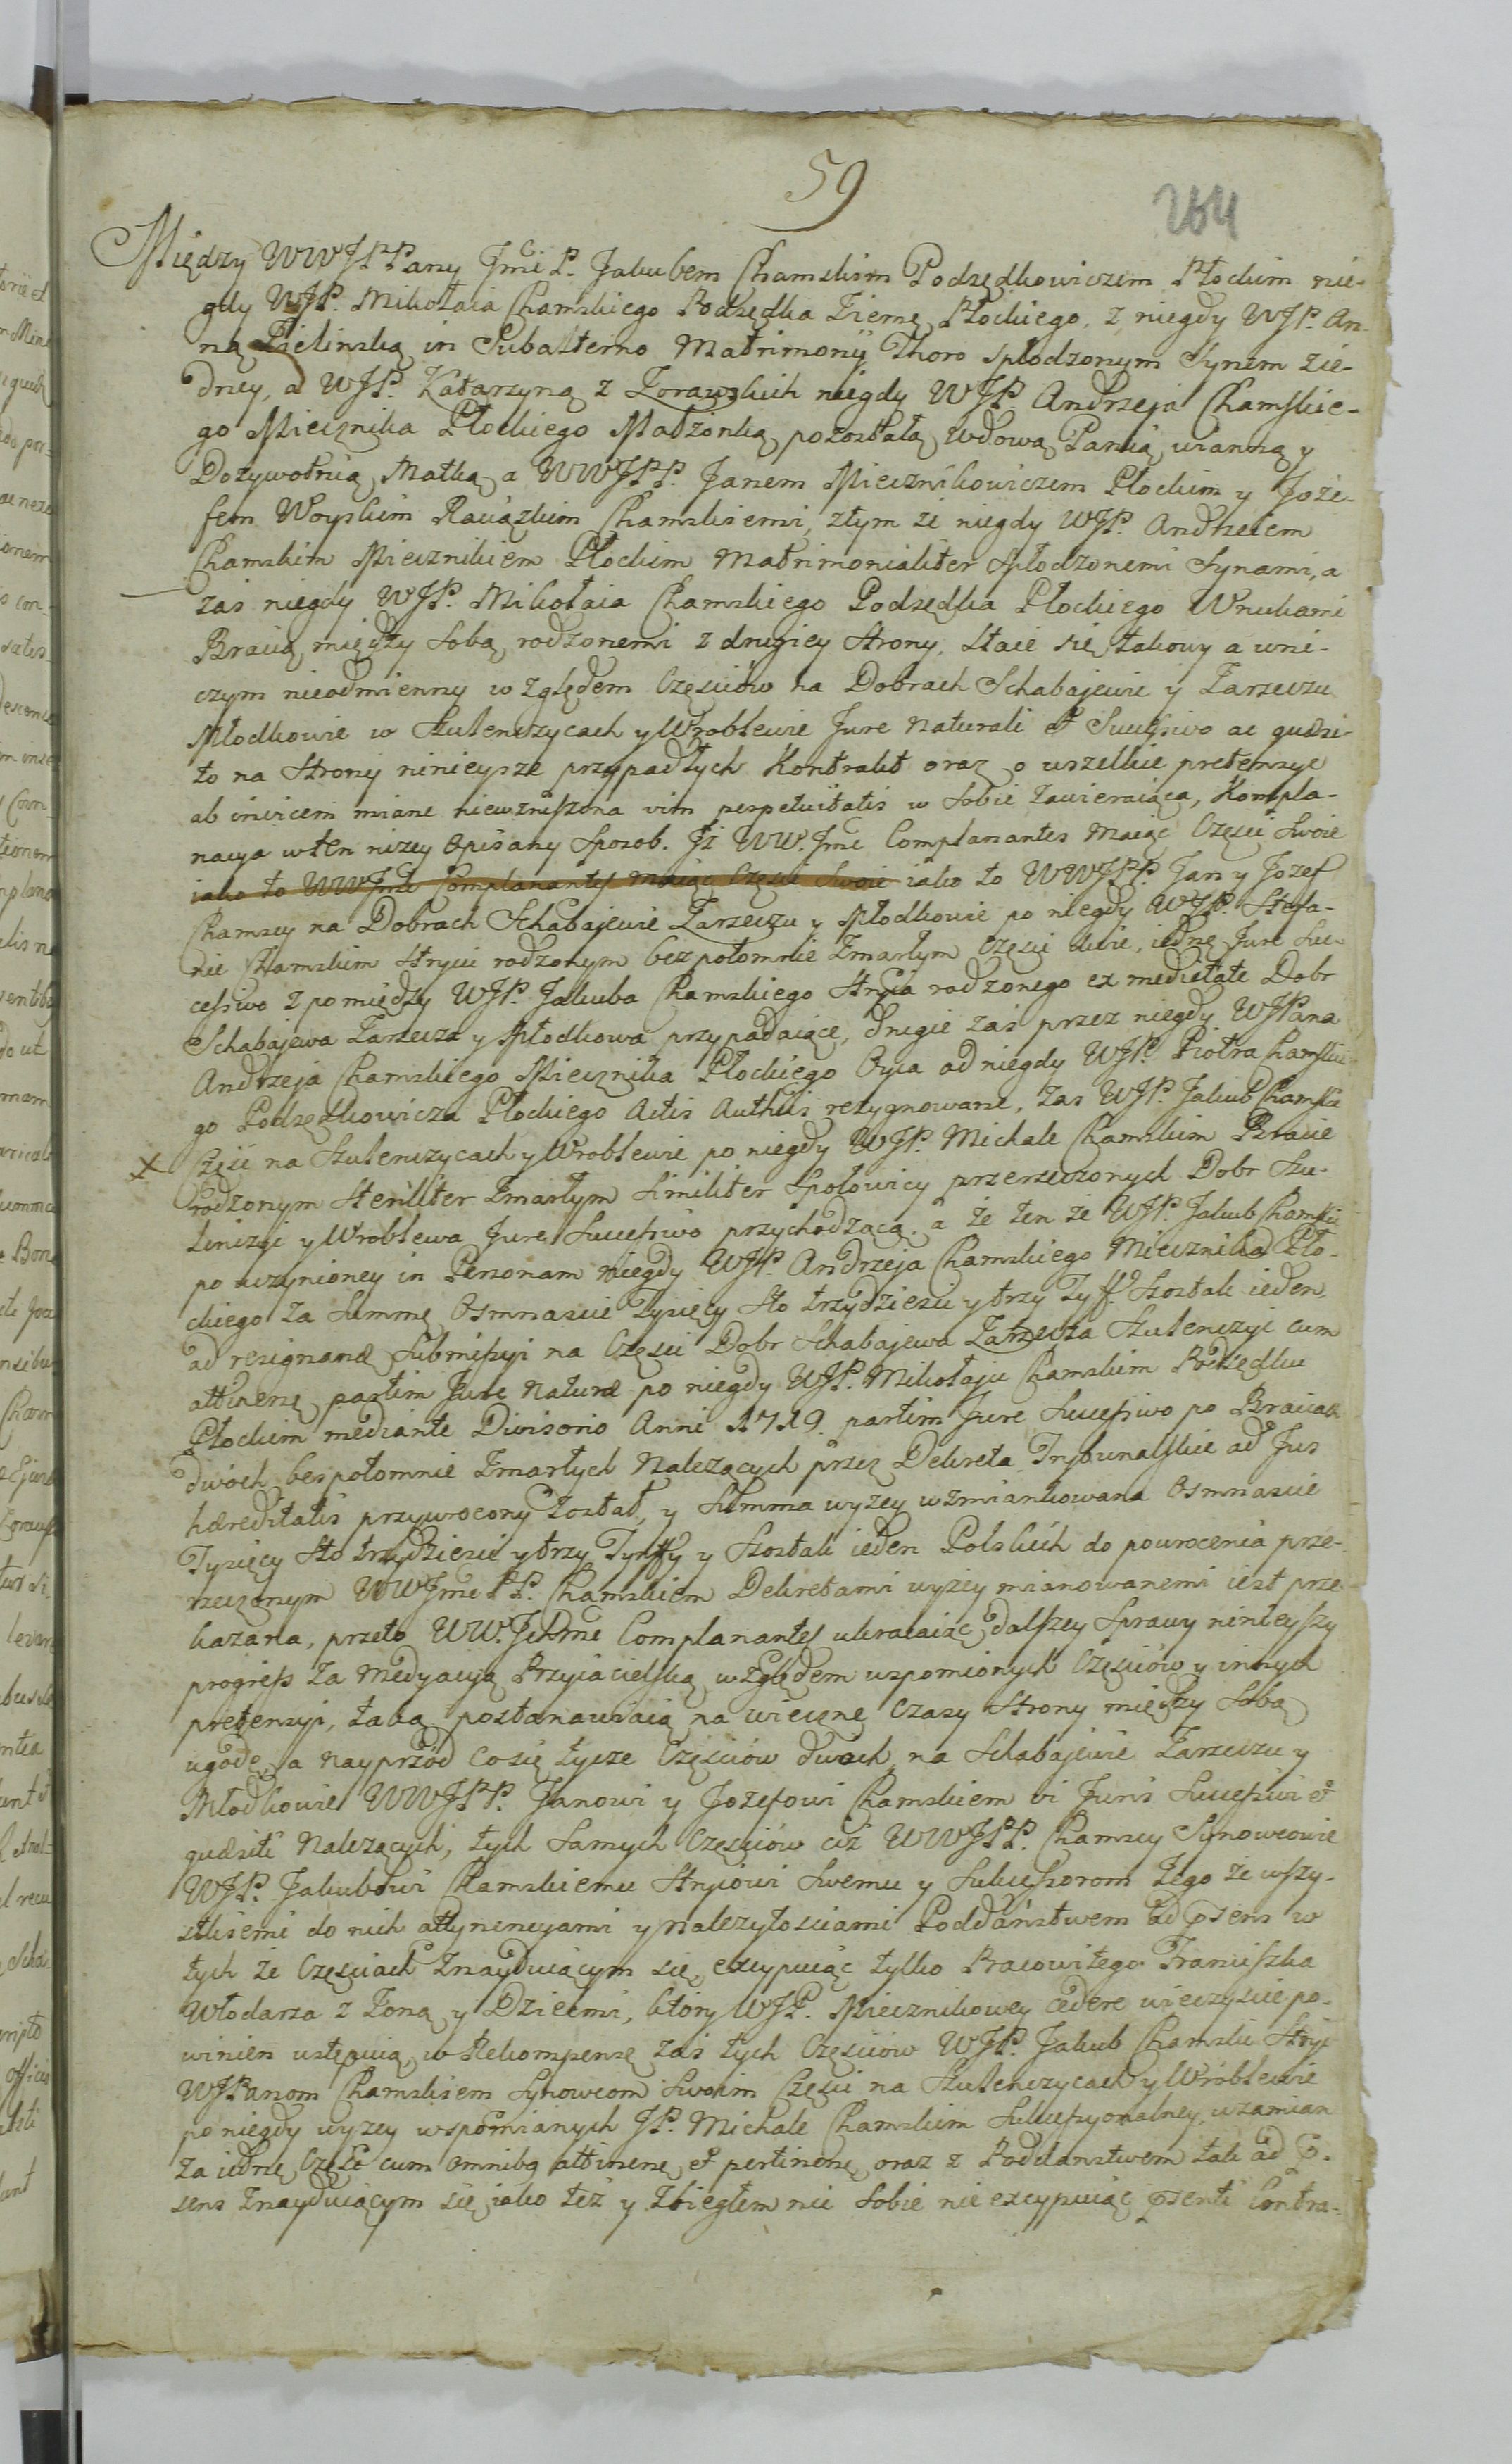 59
264
Między WWJPPany Jmci P. Jakubem Chamskim Podsędkowiczem Płockim nie-
gdy WJP. Mikołaia Chamskiego Podsędka Ziemę. Płockiego, z niegdy WJP. An-
ną Zielinską in Subalterno Matrimonij Thoro spłodzonym Synem zie-
dney, a WJP. Katarzyną z Zorawskich niegdy WJP Andrzeja Chamskie-
go Miecznika Płockiego Małżonką pozostałą wdową Panią wianną y
Dozywotnią Matką a WWJPP. Janem Miecznikowiczem Płockim y Joze-
fem Woyskim Raciązkim Chamskiemi, ztym ze niegdy WJP. Andrzeiem
Chamskim Miecznikiem Płockim Matrimonialiter spłodzonemi Synami, a
zas niegdy WJP. Mikołaia Chamskiego Podsędka Płockiego Wnukami
Bracią między sobą rodzonemi z drugiey Strony, staie się takowy a wni-
czym nieodmienny względem Częsciów na Dobrach Schabajewie y Zarzeczu
Młodkowie w Szulenczycach y Wroblewie Jure naturali et Successivo ac quæsi-
to na Strony ninieysze przypadłych Kontrakt oraz o wszelkie pretensye
ab invicem miane niewzruszona vim perpetuitatis w sobie zawieraiąca, Kompla-
nacya wten nizey opisany Sposob. Jz WW. Jmć Complanantes maiąc Częsci Swoie
iako to WWJmć Complanantes maiąc Częsci Swoie iako to WWJPP. Jan y Jozef
Chamscy na Dobrach Schabajewie Zarzeczu y Młodkowie po niegdy WJP. Stefa-
nie Chamskim Stryiu rodzonym bezpotomnie Zmarłym Częsci dwie, iednę Jure Suc-
cessivo z pomiędzy WJP. Jakuba Chamskiego Stryia rodzonego ex medietate Dobr
Schabajewa Zarzecza y Młodkowa przypadaiące, drugie zas przez niegdy WJPana
Andrzeja Chamskiego Miecznika Płockiego Oyca od niegdy WJP. Piotra Chamskie-
go Podsędkowicza Płockiego Actis Authcis rezygnowane, Zas WJP. Jakub Chamski
X Częsć na Szulenczycach y Wroblewie po niegdy WJP. Michale Chamskim Bracie
rodzonym Steriliter Zmarłym similiter Społowicy przerzeczonych Dobr Szu-
lenczyc y Wroblewa Jure Successivo przychodzącą. a że ten że WJP. Jakub Chamski
po uczynioney in Personam niegdy WJP. Andrzeja Chamskiego Miecznika Pło-
ckiego za Summę Osmnascie Tysięcy sto trzydziesci y trzy Tyf. Szostak ieden,
ad resignand Submissyi na Częsci Dobr Schabajewa Zarzecza Szulenczyc cum
attinenę partim Jure Naturæ po niegdy WJP. Mikołaju Chamskim Podsędku
Płockim mediante Divisorio Anni 1719. partim Jure Successivo po Braciach
dwóch bespotomnie Zmarłych Nalezących przez Dekreta Trybunalskie ad Jus
hæreditatis przywrocony został, y Summa wyzey wzmiankowana Osmnascie
Tysięcy sto trzydziesci y trzy Tynffy y Szostak ieden Polskich do powrocenia prze-
rzeczonym WWJmć PP. Chamskiem Dekretami wyżey mianowanemi iest prze-
kazana, przeto WW. Jchme Complanantes ukracaiąc dalszey Sprawy ninieyszy
progress za Medyacyą Przyiacielską względem wspomionych Częsciów y innych
pretensyi, taką postanawiaią na wieczne Czasy Strony między sobą
ugodę, a nayprzód co się tycze Częściów dwóch, na Schabajewie Zarzeczu y
Młodkowie WWJPP. Janowi y Jozefowi Chamskiem vi Juris Successivi et
quæsiti Nalezących, tych samych Częsciów ciż WWJPP. Chamscy Synowcowie
WJP. Jakubowi Chamskiemu Stryiowi swemu y Sukcessorom Jego ze wszy-
stkiemi do nich attynencyami y nalezytosciami Poddaństwem ad psens w
tych że Częsciach znayduiącym się, excypuiąc tylko Pracowitego Franciszka
Włodarza z Zoną y Dziecmi, ktory WJP. Miecznikowey cedere wieczyscie po-
winien ustępuią, w Rekompensę zaś tych Częsciów WJP. Jakub Chamski Stryi
WJPanom Chamskiem Synowcom Swoim Częsci na Szulenczycach y Wróblewie
po niegdy wyzey wspomianych JP. Michale Chamskim Sukcessyonalney, wzamian
za iednę Częsc cum omnibq attinenę et pertinenę oraz z Poddanstwem tak ad p-
sens znayduiącym się iako też y zbiegłem nic sobie nie excypuiąc psenti Contra-